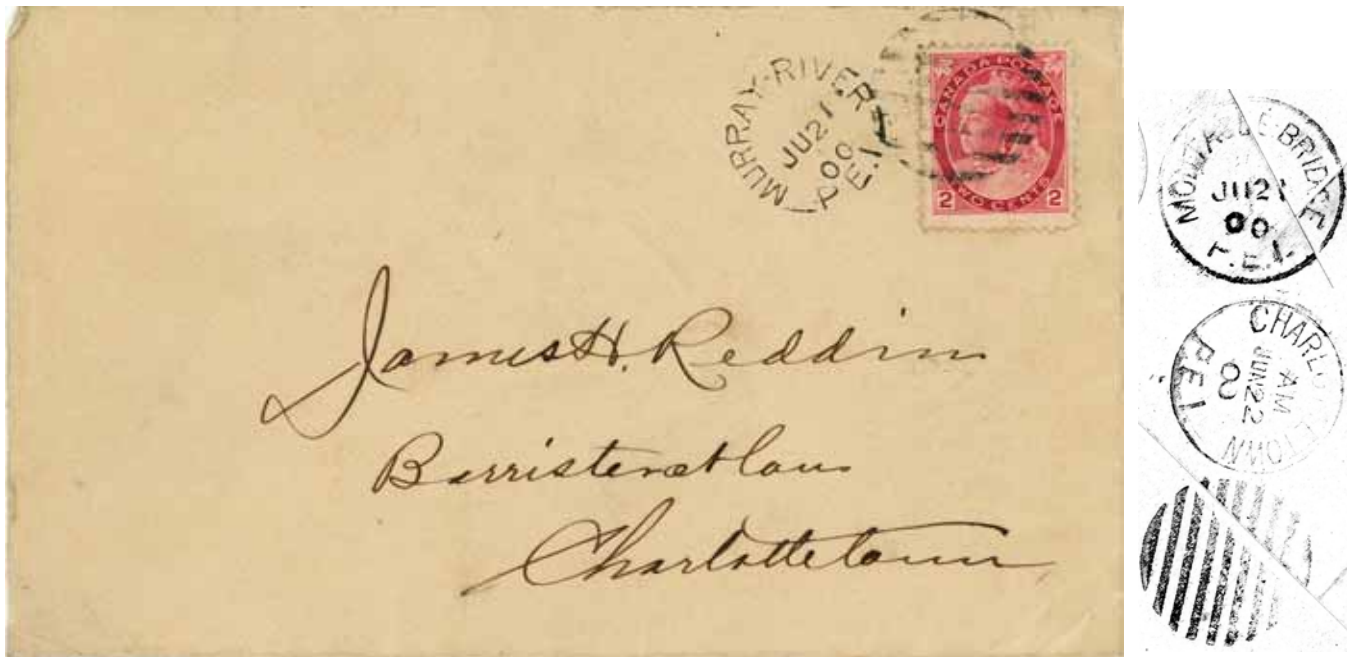 MURRAY-RIVER
JU 21
00
P.E.I
CANADA POSTAGE
TWO CENTS
2 2
James H. Reddin
Barrister at Law
Charlottetown
BRIDGE
JU 21
00
P.E.I.
CHARLOTTETOWN
AM
JUN 22
P.E.I.